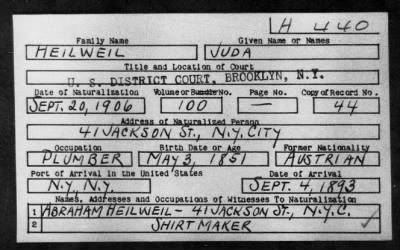 H 440
Family Name Given Name or Names
HEILWEIL JUDA
Title and Location of Court
U. S. DISTRICT COURT, BROOKLYN, N.Y.
Date of Naturalization Volume or Bundle No. Page No. Copy of Record No.
SEPT. 20, 1906 100 — 44
Address of Naturalized Person
41 JACKSON ST., N.Y. CITY
Occupation Birth Date or Age Former Nationality
PLUMBER MAY 3, 1851 AUSTRIAN
Port of Arrival in the United States Date of Arrival
N.Y., N.Y. SEPT. 4, 1893
Names, Addresses and Occupations of Witnesses To Naturalization
1 ABRAHAM HEILWEIL - 41 JACKSON ST., N.Y.C.
2 SHIRT MAKER